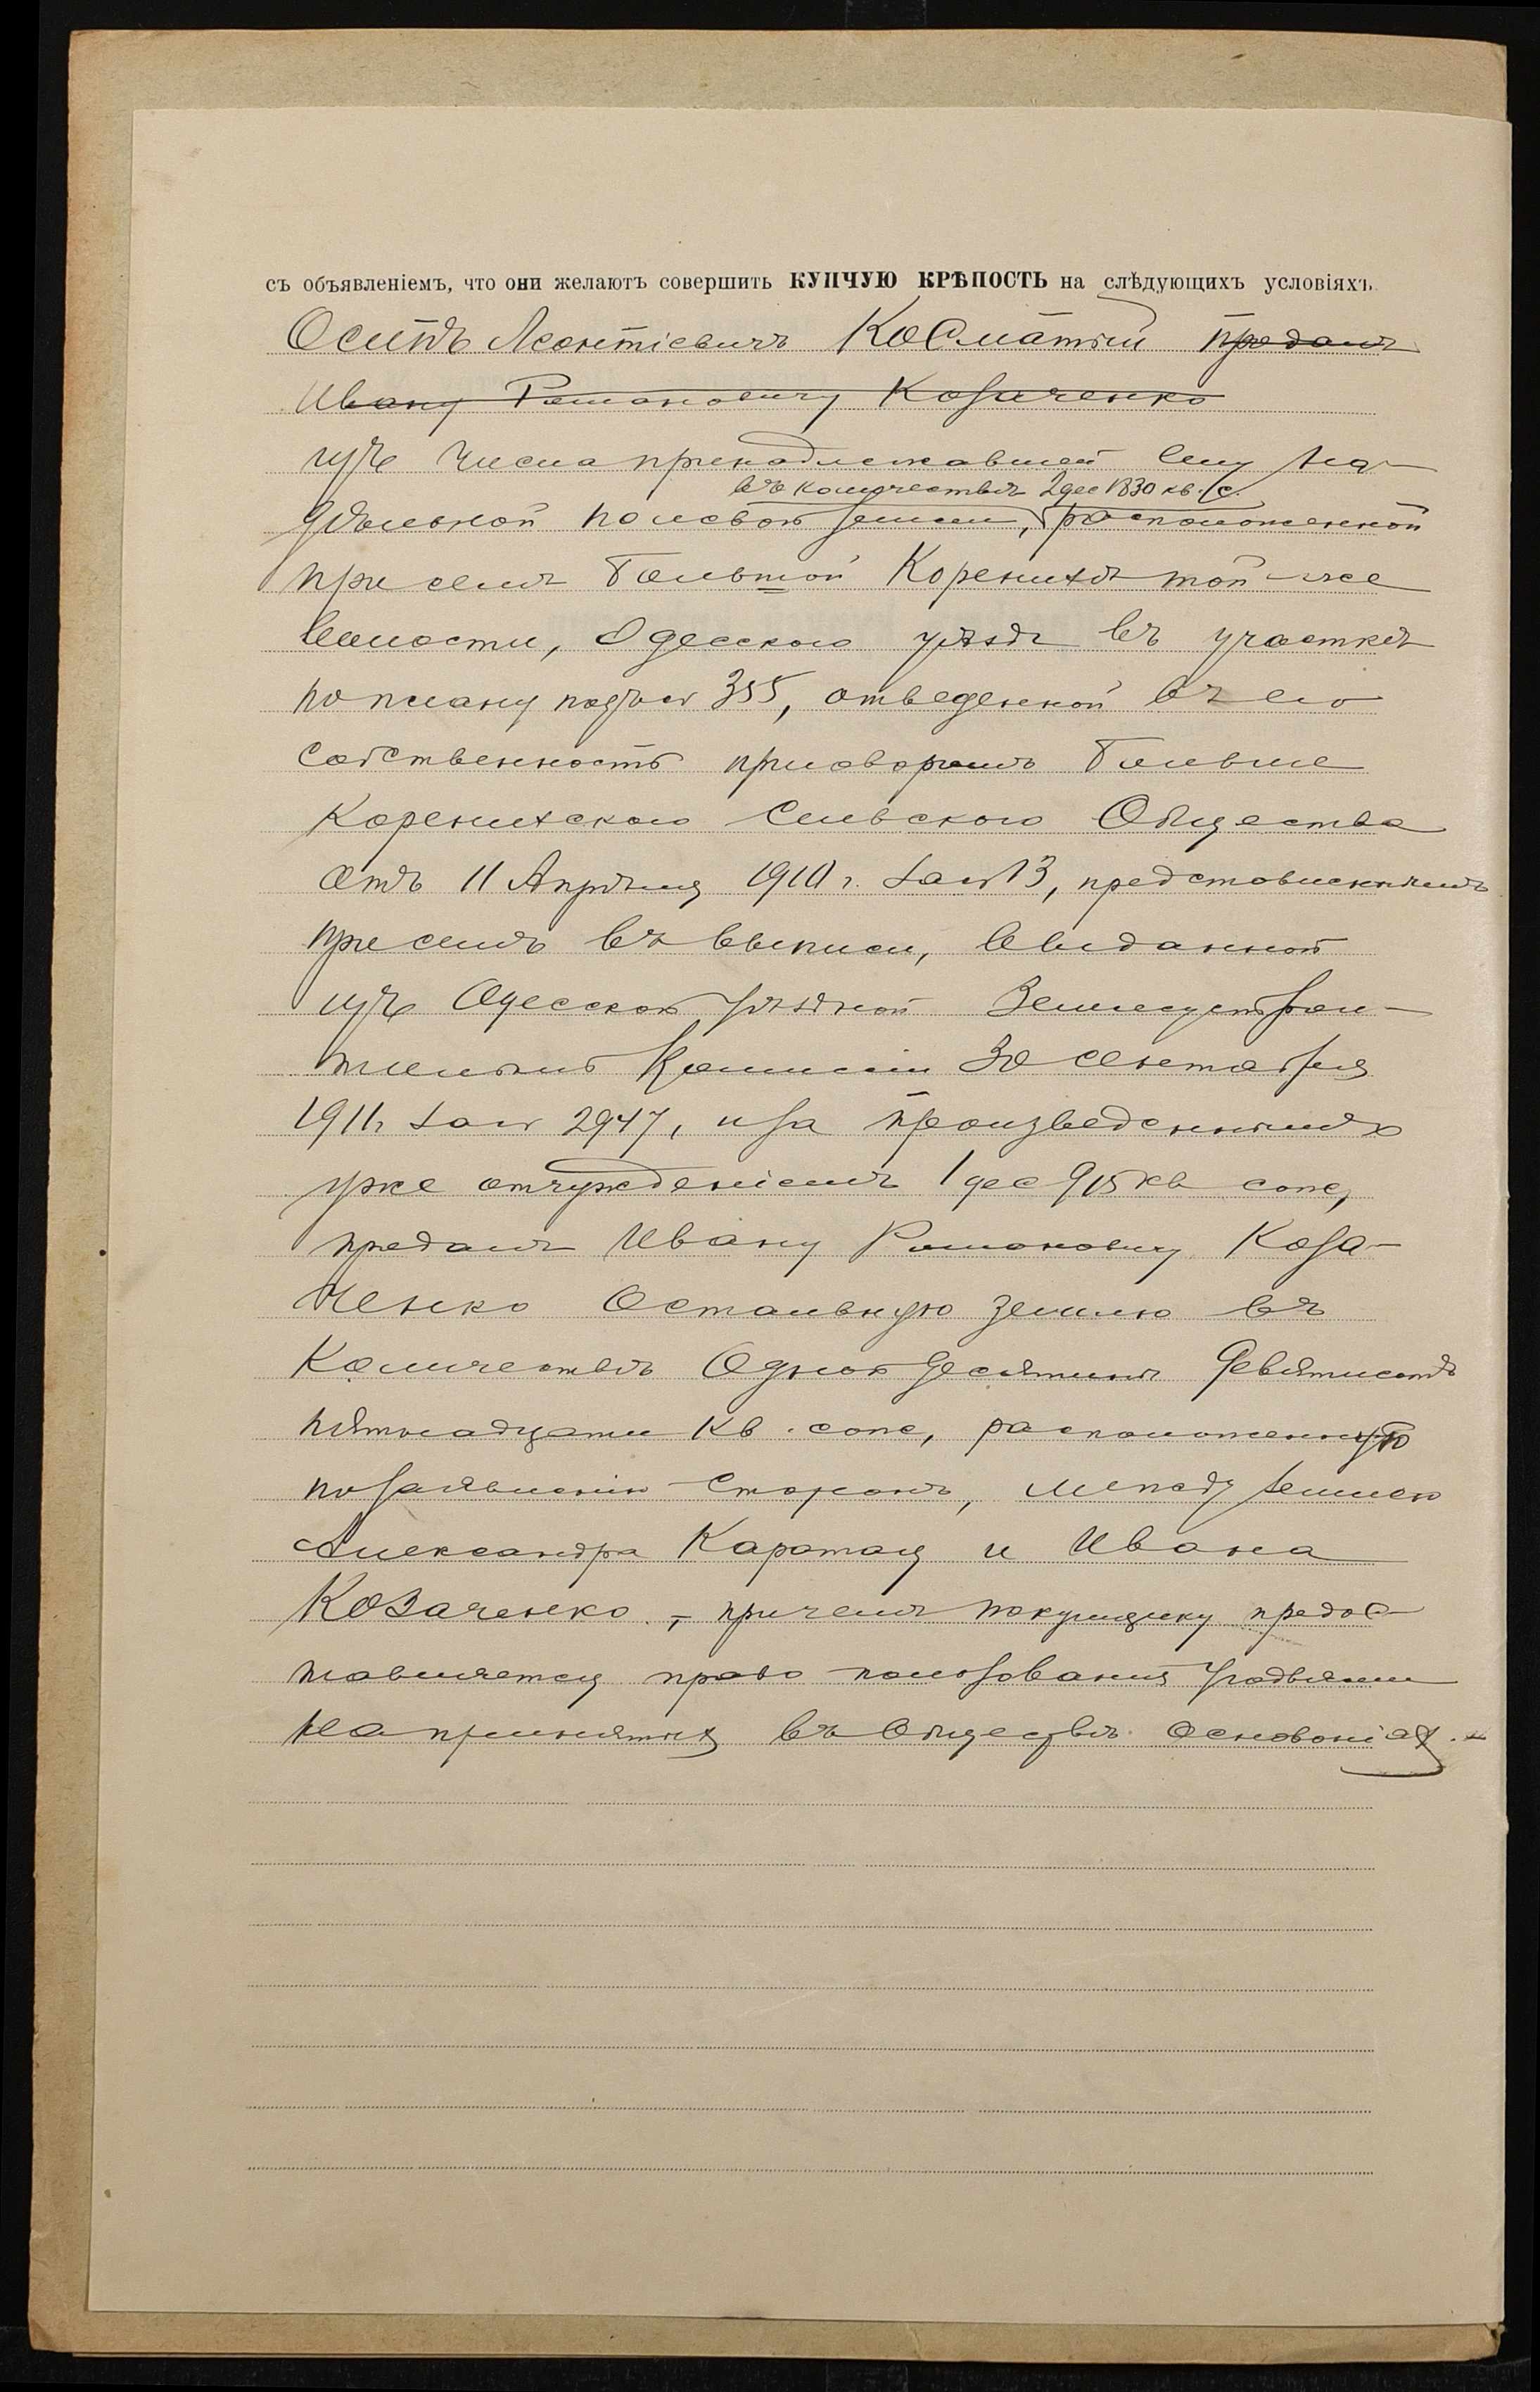 съ объявленіемъ, что они желаютъ совершить КУПЧУЮ КРѢПОСТЬ на слѣдующихъ условіяхъ
Осипъ Леонтіевичъ Косматый продалъ
Ивану Романовичу Козаченко
изъ числа принадлежавшей ему на-
въ количествѣ 2 дес 1830 кв. с.
дѣльной полевой земли, расположенной
при селѣ Большой Коренихѣ той-же
волости, Одесскаго уѣзда въ участкѣ
по плану подъ № 355, отведенной въ его
собственность приговоромъ Больше
Коренихскаго Сельскаго Общества
отъ 11 Апрѣля 1910 г. за № 13, представленнымъ
при семъ въ выписи, выданной
изъ Одесской Уѣздной Землеустрои-
тельной Комиссіи 30 сентября
1911 г. за № 2947, и за произведеннымъ
уже отчужденіемъ 1 дес 915 кв саж,
продалъ Ивану Романовичу Коза-
ченко остальную землю въ
количествѣ Одной десятины девятисотъ
пятнадцати кв. саж, расположенную
по заявленію сторонъ, между землею
Александра Каратая и Ивана
Козаченко, - причемъ покупщику предос-
тавляется право пользованія угодьями
на принятыхъ въ обществѣ основаніяхъ.-